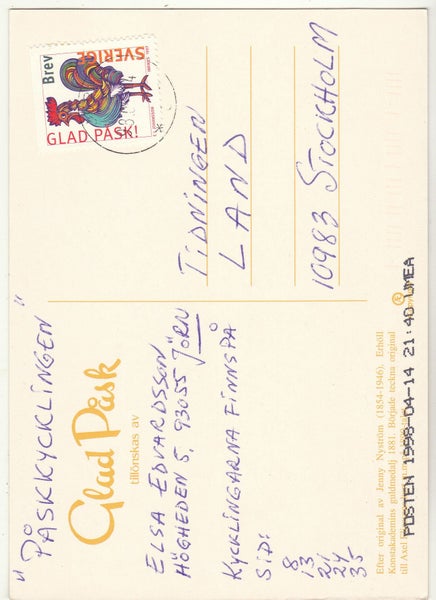 "PÅSKKYCKLINGEN"
Glad Påsk
tillönskas av
ELSA EDVARDSSON
HÖGHEDEN 5, 93055 JÖRN
KYCKLINGARNA FINNS PÅ
SID:
8
13
21
24
35
Brev
SVERIGE
GLAD PÅSK!
TIDNINGEN
LAND
10983 STOCKHOLM
Efter original av Jenny Nyström (1854-1946). Erhöll
Konstakademins guldmedalj 1881. Började teckna original
till Axel
POSTEN 1998-04-14 21:40 UMEA